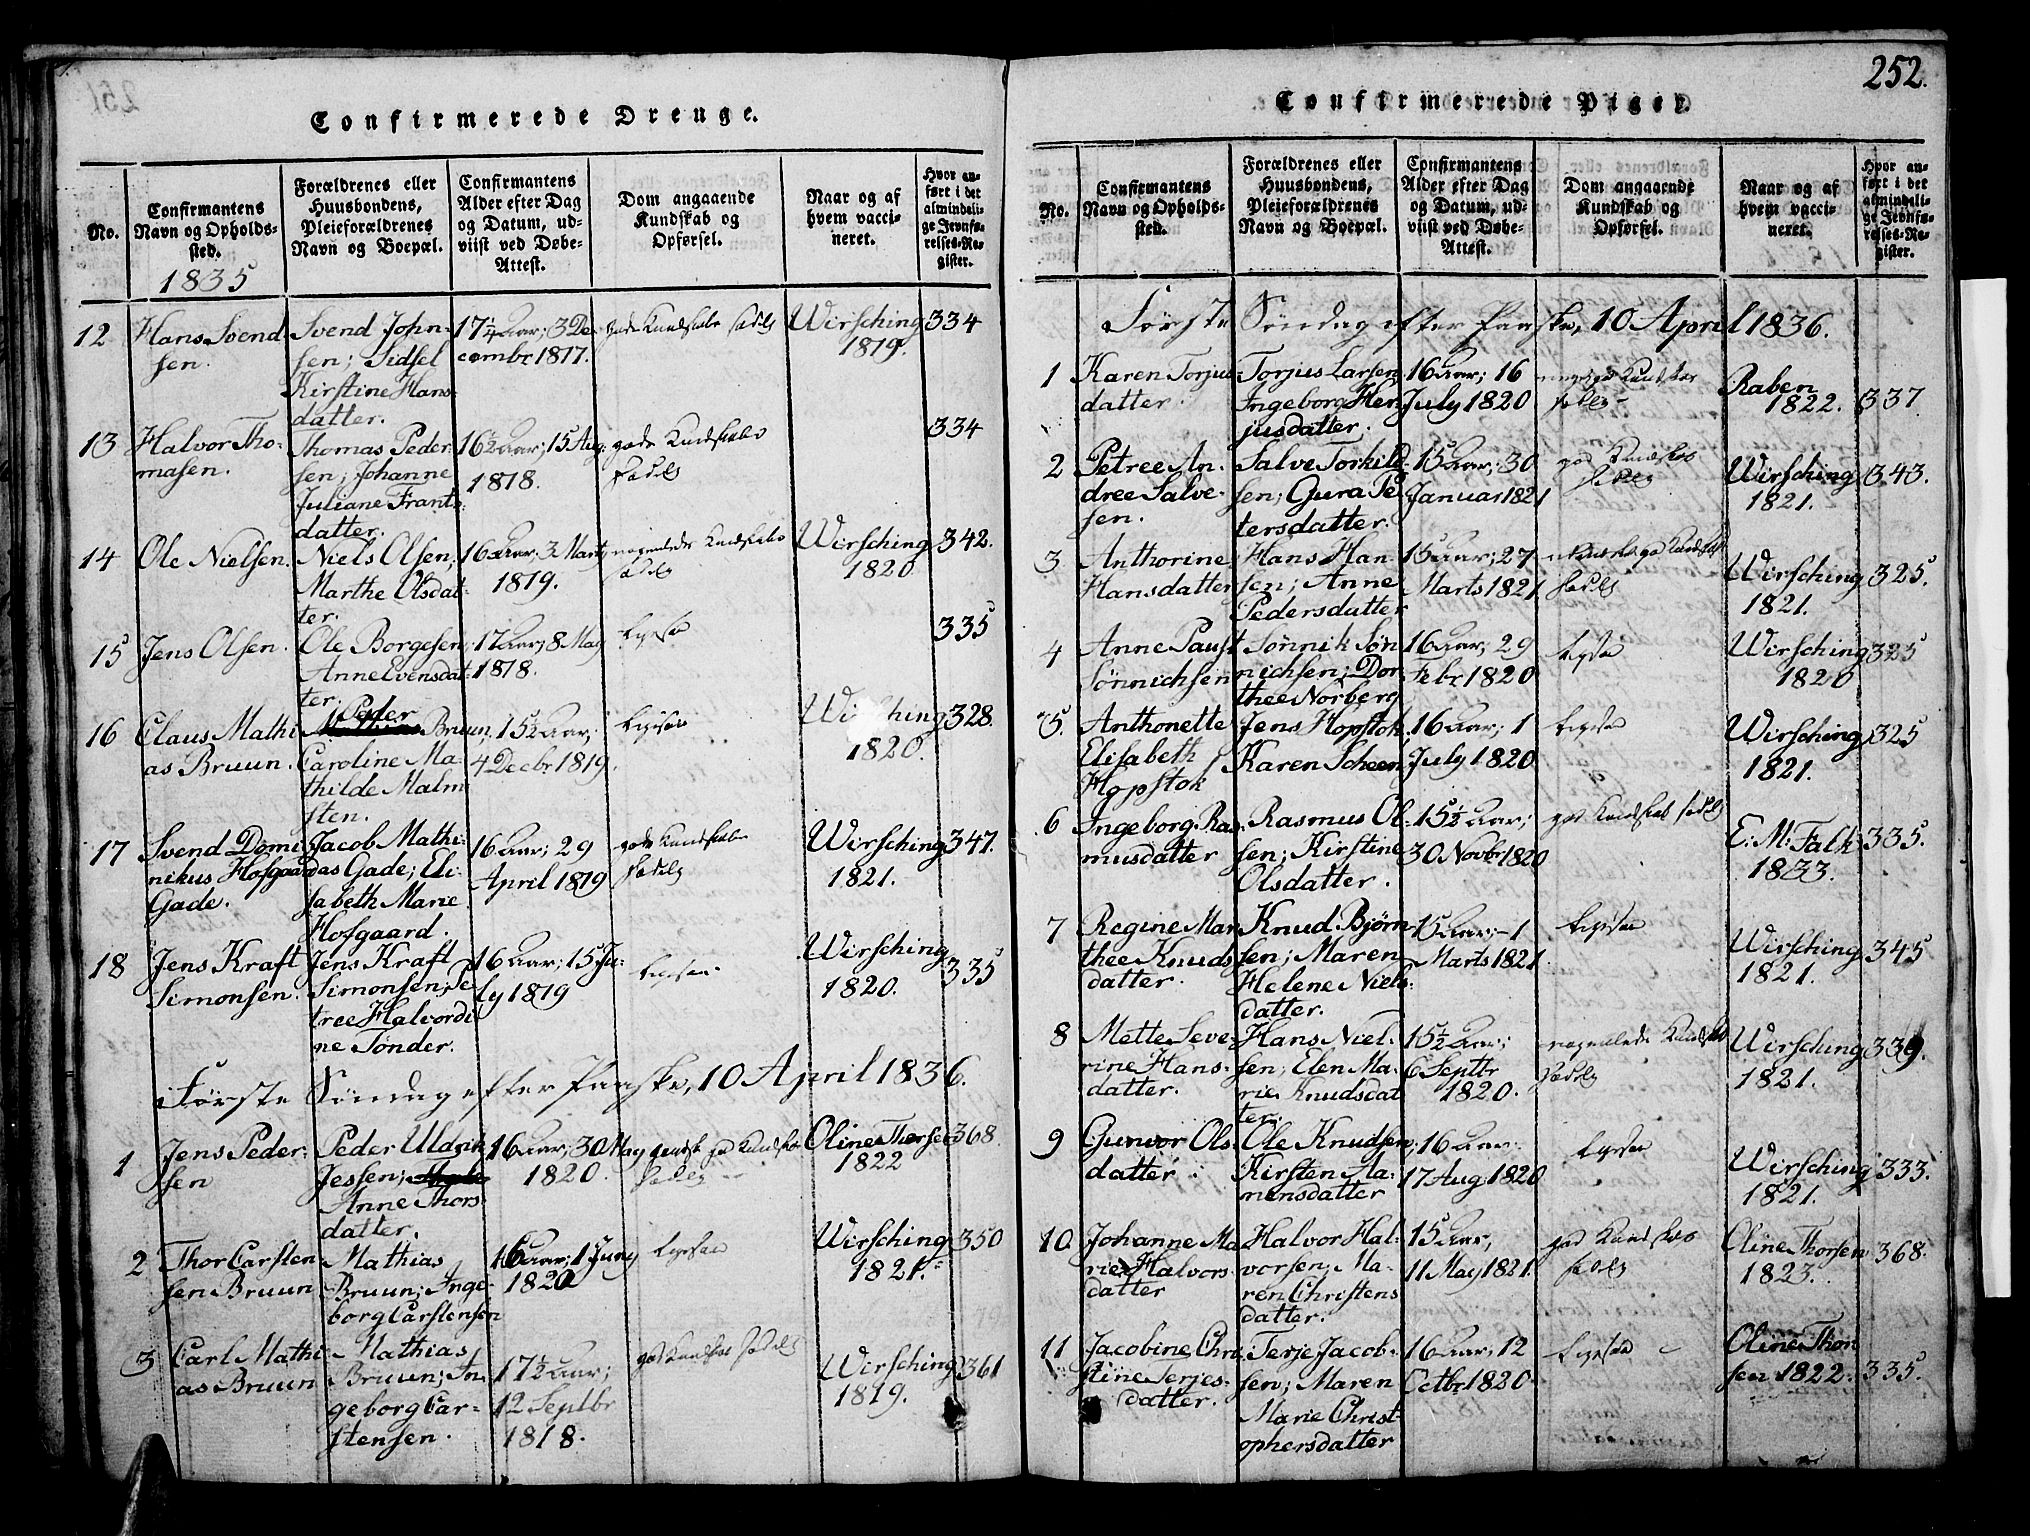 Confirmerede Drenge.
No.
Confirmantens
Navn og Opholds-
sted.
1835
Forældrenes eller
Huusbondens,
Pleieforældrenes
Navn og Boepæl.
Confirmantens
Alder efter Dag
og Datum, ud-
viist ved Døbe-
Attest.
Dom angaaende
Kundskab og
Opførsel.
Naar og af
hvem vacci-
neret.
Hvor an-
ført i det
almindeli-
ge Jevnfø-
relses-Re-
gister.
12
Hans Svend
sen.
Svend John-
sen; Sidsel
Kirstine Hans-
datter.
17¼ Aar; 3 De-
cembr 1817.
gode Kundskaber
Wirsching
1819.
334
13
Halvor Tho-
masen.
Thomas Peder-
sen; Johanne
Juliane Frants-
datter.
16½ Aar; 15 Aug.
1818.
gode Kundskaber
334
14
Ole Nielsen.
Niels Olsen;
Marthe Olsdat-
ter.
16 Aar; 3 Marts
1819.
nogenlede Kundskaber
Wirsching
1820
342.
15
Jens Olsen.
Ole Borgesen;
Anne Evensdat-
ter.
17 Aar; 8 May
1818.
Ligesaa
335
16
Claus Mathi
as Bruun.
Peder
Bruun,
Caroline Ma-
thilde Malm
sten.
15½ Aar;
4 Decbr 1819.
Ligesaa
Wirsching
1820.
328.
17
Svend Domi
nikus Hofgaard
Gade.
Jacob Mathi-
as Gade; Eli-
sabeth Marie
Hofgaard.
16 Aar; 29
April 1819
gode Kundskaber
Wirsching
1821.
347.
18
Jens Kraft
Simonsen.
Jens Kraft
Simonsen; Pe
tree Halvordi
ne Tønder.
16 Aar; 15 Ju-
ly 1819
Ligesaa
Wirsching
1820.
335
Første Søndag efter Paaske, 10 April 1836.
1
Jens Peder-
sen
Peder Uldrik
Jessen;
Anne Thors
datter.
16 Aar; 30 May
1820.
god Kundskab
Oline Thorsen
1822
368.
2
Thor Carsten
sen Bruun
Mathias
Bruun; Inge-
borg Carstensen
16 Aar; 1 Juny
1820
Ligesaa
Wirsching
1821.
350
3
Carl Mathi
as Bruun
Mathias
Bruun; In-
geborg Car-
stensen.
17½ Aar;
12 Septbr
1818.
god Kundskab
Wirsching
1819.
361
252.
Confirmerede Piger.
No.
Confirmantens
Navn og Opholds-
sted.
Forældrenes eller
Huusbondens,
Pleieforældrenes
Navn og Boepæl.
Confirmantens
Alder efter Dag
og Datum, ud-
viist ved Døbe-
Attest.
Dom angaaende
Kundskab og
Opførsel.
Naar og af
hvem vacci-
neret.
Hvor an-
ført i det
almindeli-
ge Jevnfø-
relses-Re-
gister.
Første Søndag efter Paaske, 10 April 1836.
1
Karen Torjus
datter.
Torjus Larsen
Ingeborg Her
jusdatter.
16 Aar; 16
July 1820
Raben
1822.
337
2
Petree An-
dree Salve-
sen.
Salve Torkild-
sen; Gura Pe
tersdatter.
15 Aar; 30
Januar 1821
god Kundskab
Wirsching
1821.
343.
3
Anthorine
Hansdatter
Hans Han-
sen; Anne
Pedersdatter
15 Aar; 27
Marts 1821
Wirsching
1821.
325.
4
Anne Paust
Sønnichsen
Sønnik Søn
nichsen; Dor
thee Norberg
16 Aar; 29
Febr 1820
Ligesaa
Wirsching
1820
325
5.
Anthonette
Elisabeth
Hopstok
Jens Hopstok,
Karen Scheen
16 Aar; 1
July 1820
Ligesaa
Wirsching
1821.
325
6
Ingeborg Ras-
musdatter
Rasmus Ol-
sen; Kirstine
Olsdatter.
15½ Aar;
30 Novbr 1820
god Kundskab
E: M: Falk
1833.
335.
7
Regine Mar
thee Knuds
datter.
Knud Bjørn-
sen; Maren
Helene Niels-
datter.
15 Aar; 1
Marts 1821
Ligesaa
Wirsching
1821.
345
8
Mette Seve-
rine Hans-
datter.
Hans Niel-
sen; Elen Ma-
rie Knudsdat
ter.
15½ Aar;
6 Septbr
1820.
nogenlede Kundskab
Wirsching
1821.
339.
9
Gunvor Ols-
datter.
Ole Knudsen;
Kirsten Aa-
mensdatter
16 Aar;
17 Aug 1820
Ligesaa
Wirsching
1821.
333.
10
Johanne Ma
rie Halvors-
datter
Halvor Hal-
vorsen; Ma-
ren Christens
datter.
15 Aar,
11 May 1821.
god Kundskab
Oline Thorsen
1823.
368.
11
Jacobine Chri
stine Terjes-
datter.
Terje Jacob-
sen; Maren
Marie Christ-
ophersdatter
16 Aar; 12
Octbr 1820
Ligesaa
Oline Thor
sen 1822.
335.